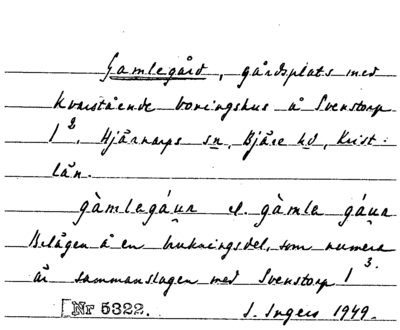 Gamlegård, gårdsplats med
kvarstående boningshus å Svenstorp
1², Hjärnarps sn, Bjäre hd, Krist.
län.
gàmlagáu̯a el. gàmla gáu̯a
Belägen å en brukningsdel, som numera
är sammanslagen med Svenstorp 1³.
[Nr 5322. S. Ingers 1949.